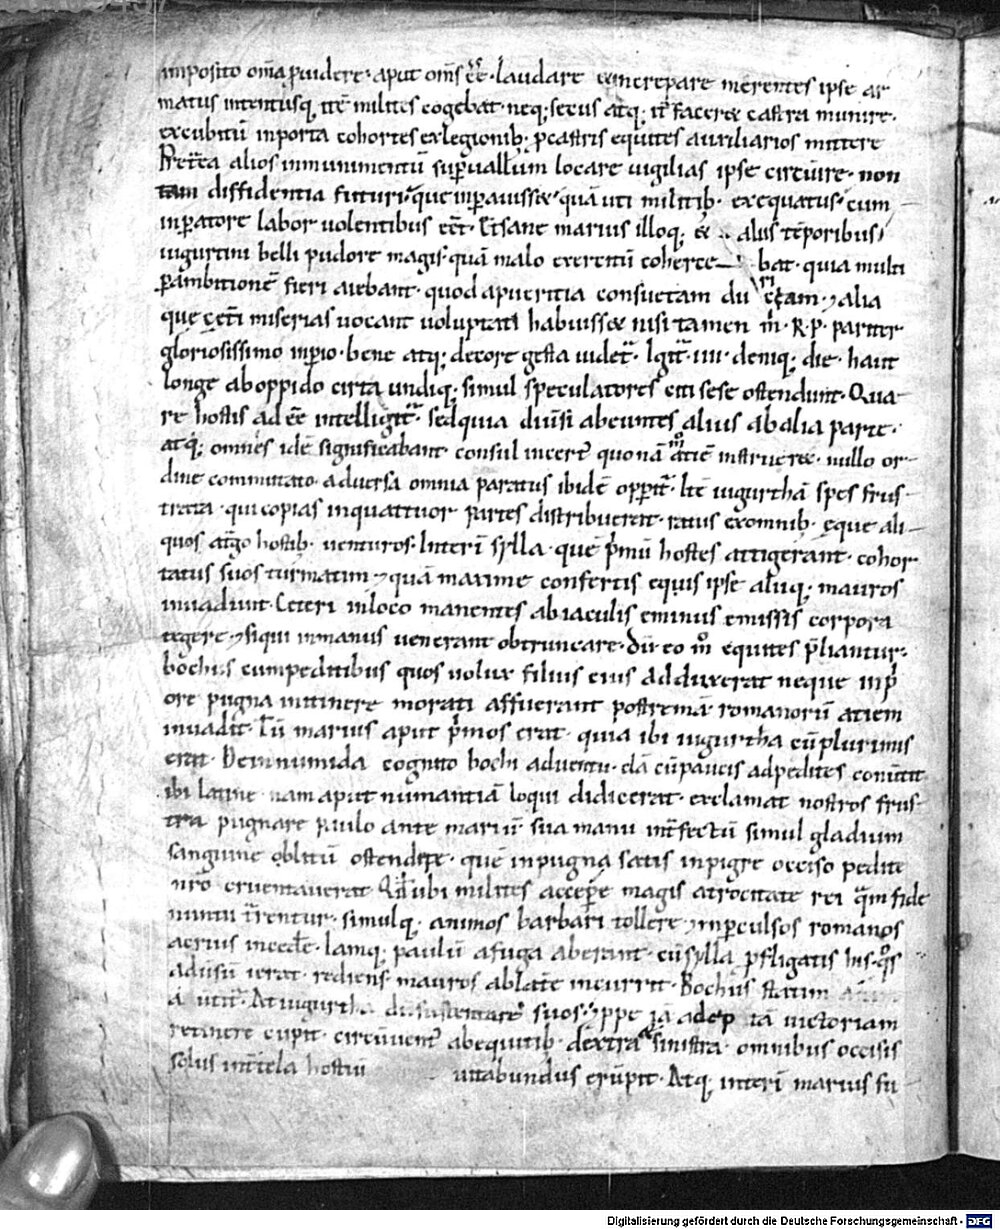 imposito om̄a ꝓuidere· aput om̄s ēē· laudare & increpare merentes ipse ar
matus intentusq; itē milites cogebat· neq; secus atq; it̄ facere castra munire·
excubitū in porta cohortes ex legionib; ꝓ castris equites auxiliarios mittere
Pret̄ea alios in munimentū suꝑ uallum locare uigilias ipse circūire· non
tam diffidentia futuri que inꝑauiss& quā uti militib; exequatus· cum
inꝑatore labor uolentibus eēt· Et sane marius illoq; & aliis tēporibus
iugurtini belli pudore magis· quā malo exercitū coherce bat· quia multi
ꝑ ambitionē fieri aiebant· quod a pueritia consuetam duriciam ⁊ alia
que cet̄i miserias uocant uoluptati habuiss& nisi tamen m̄· R·P· pariter
gloriosissimo inꝑio· bene atq; decore gesta uidet̄· Igit̄ IIII· deniq; die· haut
longe ab oppido cirta undiq; simul speculatores citi sese ostendunt· Qua
re hostis adēē intelligit̄· sed quia diuersi abeuntes alius ab alia parte·
atq; omnes idē significabant· consul incert̄ quo nā m̊ aciē instruer&· nullo or
dine commutato· aduersa omnia paratus ibidē opperit̄· Itē iugurthā spes frus
trata· qui copias in quattuor partes distribuerat· ratus ex omnib; eque ali
quos a tergo hostib; uenturos· Interī sylla· quē p̄mū hostes attigerant· cohor
tatus suos turmatim ⁊ quā maxime confertis equis ipse aliiq; mauros
inuadunt· Ceteri in loco manentes ab iaculis eminus emissis corpora
tegere ⁊ siqui in manus uenerant obtruncare· Dū eo m̊ equites p̄liantur·
bochus cum peditibus quos uolux filius eius adduxerat neque in p̄
ore pugna in itinere morati affuerant postremā romanorū aciem
inuadit· Tū marius aput p̄mos erat· quia ibi iugurtha cū plurimis
erat· Dein numida cognito bochi aduentu· clā cū paucis ad pedites conūtit
ibi latine nam aput numantiā loqui didicerat· exclamat nostros frus
tra pugnare paulo ante mariū sua manu int̄fectū simul gladium
sanguine oblitū ostendere· quē in pugna satis inpigre occiso pedite
nr̄o cruentauerat Qđ ubi milites accepe᷒ magis atrocitate rei q̄m fide
nuntii t̄rentur· simulq; animos barbari tollere ⁊ in ꝑculsos romanos
acrius inced̄e· Iamq; paulū a fuga aberant· cū sylla ꝓfligatis his· q̄s
aduersū ierat· rediens· mauros ab lat̄e incurrit· Bochus statim
a utit̄· At iugurtha dū sustentare suos ⁊ ꝓpe iā adep tā uictoriam
retinere cupit· circūuent̄ ab equitib; dextra & sinistra· omnibus occisis
solus int̄ tela hostiū uitabundus erūpit· Atq; interī marius fu